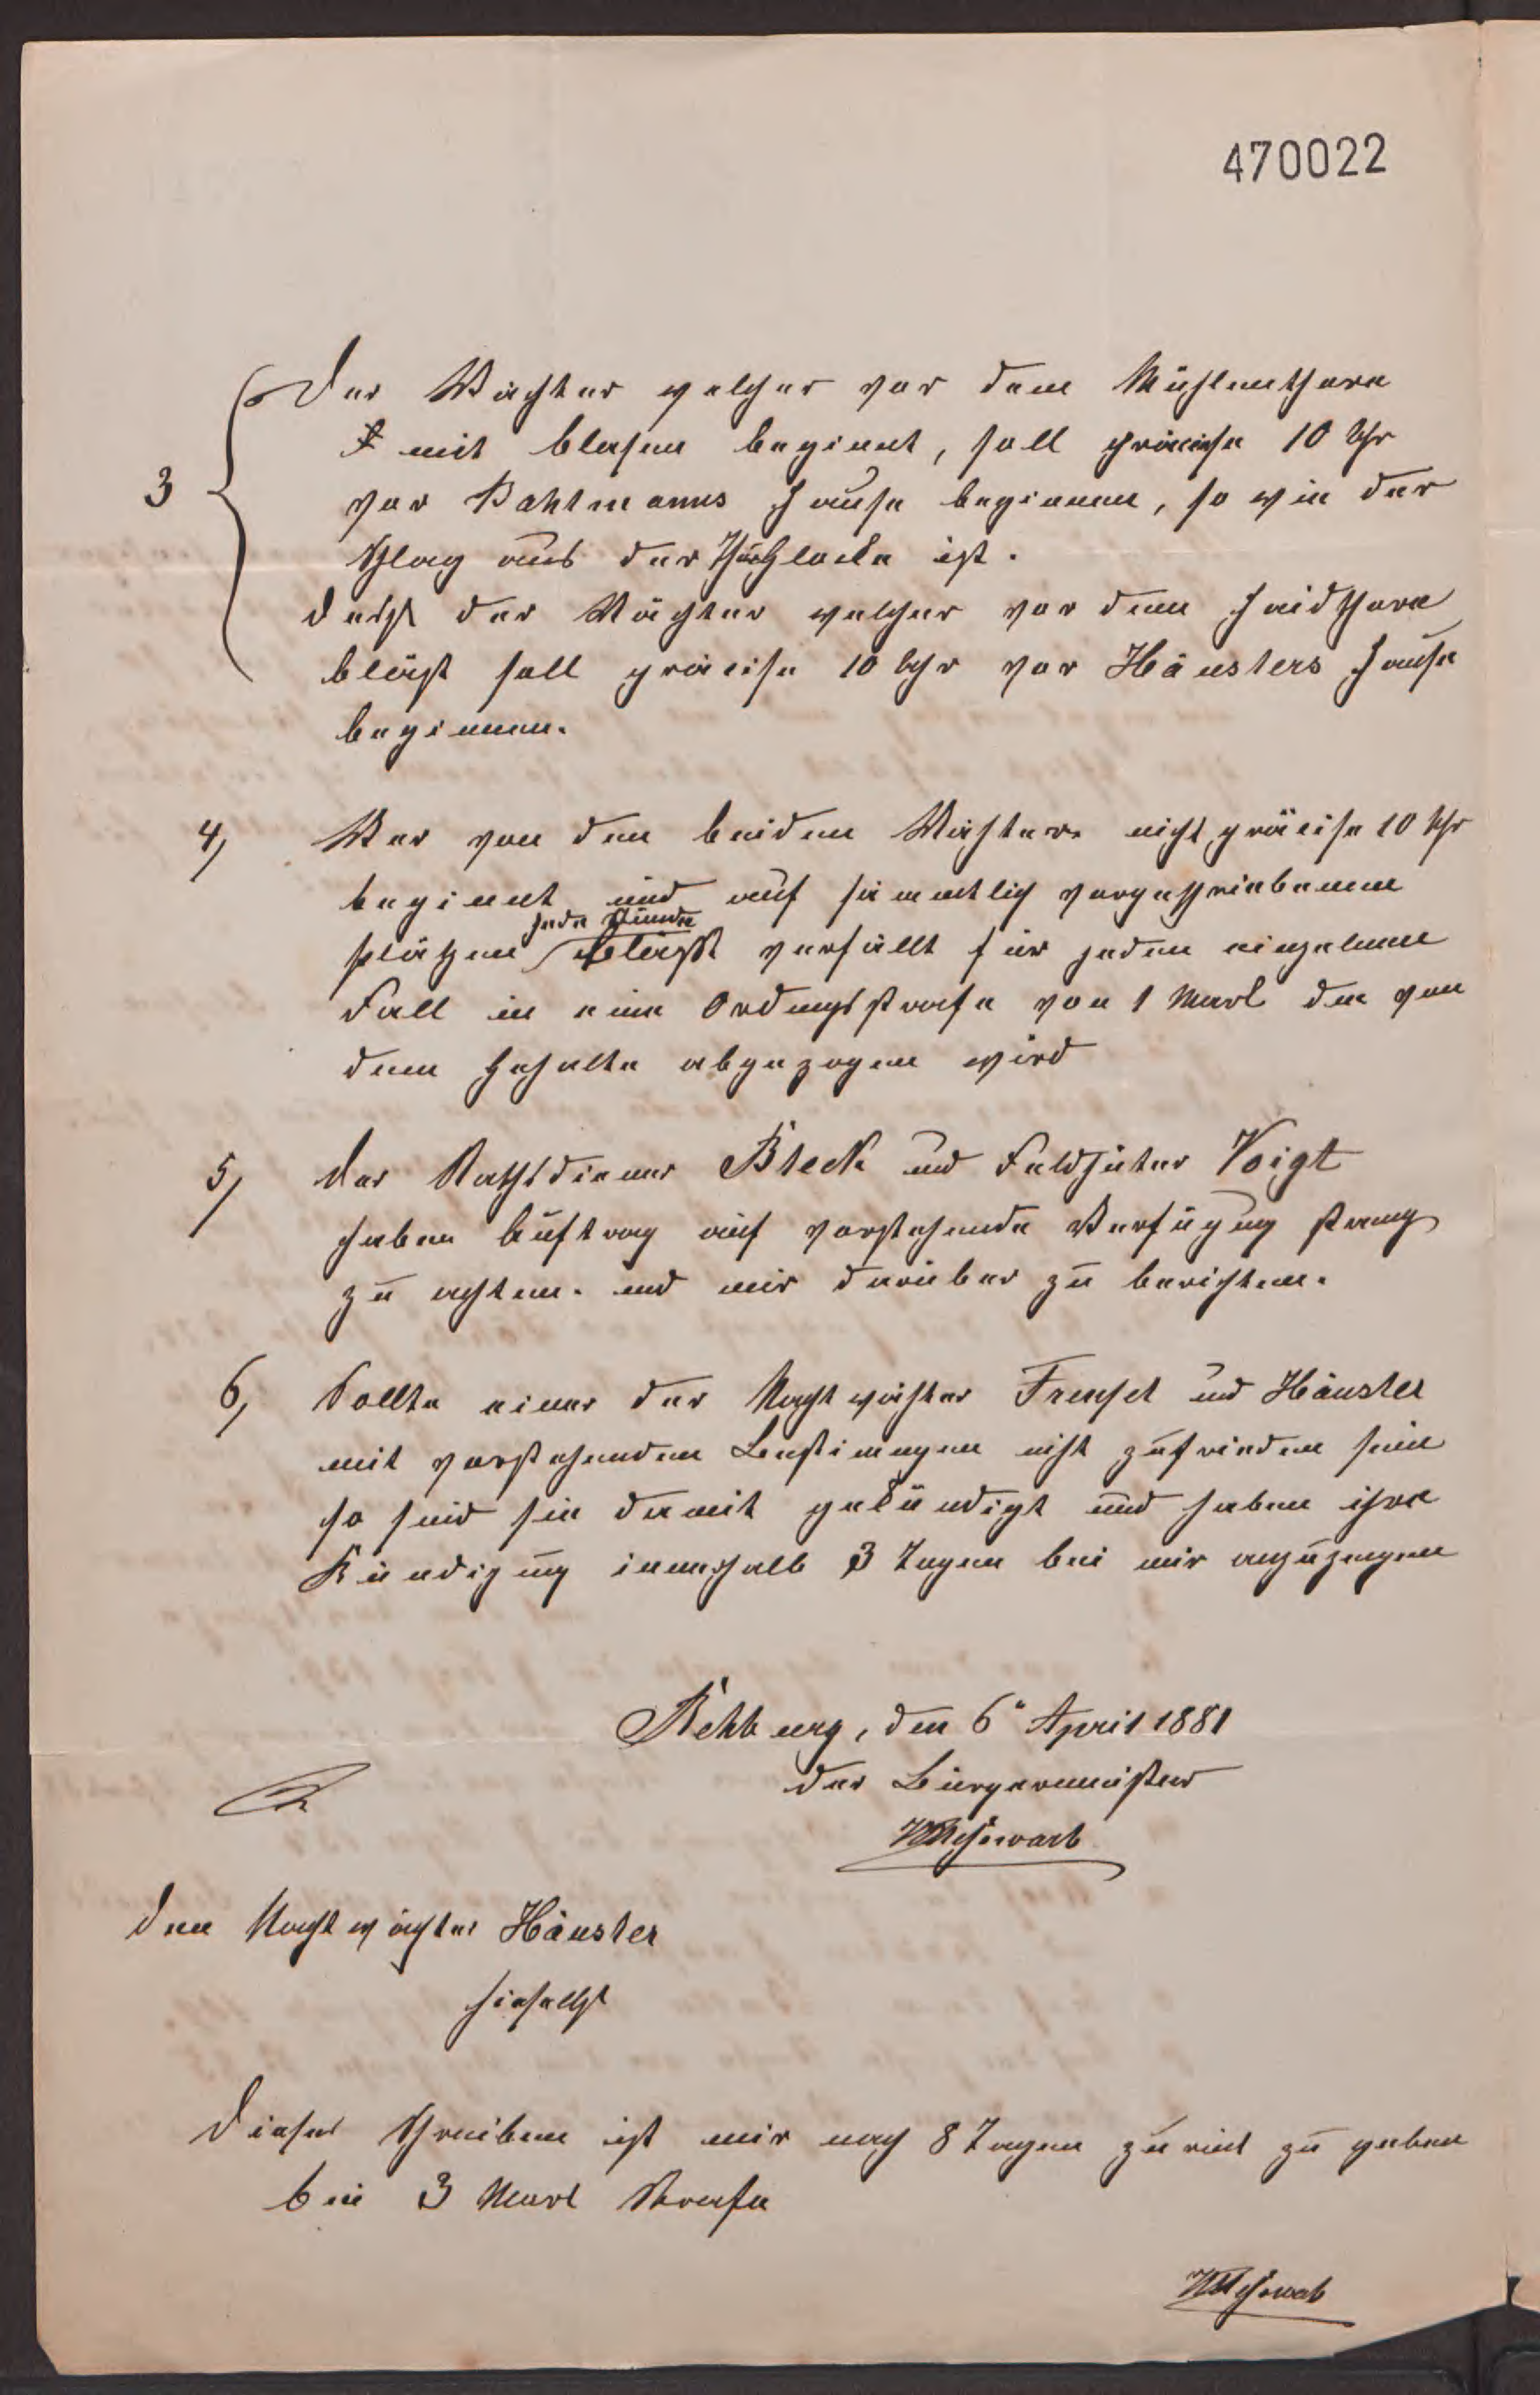 470022
3 Der Wächter welcher vor dem Mühlenthore
mit blasen beginnt, soll präcise 10 Uhr
vor Bahlmanns Hause beginnen, so wie der
Schlag aus der ist.
der Wächter welcher vor dem Heidthore
bläst soll präcise 10 Uhr vor Häuslers Hause
beginnen.
4, Wer von den beiden Wächtern nicht präcise 10 Uhr
beginnt und auf sämmtlich vorgeschriebenen
jede Stunde
plätzen bläst verfällt für jeden einzelnen
Fall in eine Ordnungsstrafe von 1 Mark die von
dem Gehalte abgezogen wird
5, Der Rathsdiener Bleck und Feldhüter Voigt
haben Auftrag auf vorstehende Verfügung streng
zu achten. und mir darüber zu berichten.
6, Sollte einer der Nachtwächter und Häusler
mit vorstehenden Bestimmungen nicht zufrieden sein
so sind sie damit gekündigt und haben ihre
Kündigung innerhalb 3 Tagen bei mir anzuzeigen
Rehburg, den 6 April 1881
Der Bürgermeister
Den Nachtwächter Häusler
hieselbst
Dieses Schreiben ist mir nach 8 Tagen zurück zu geben
bei 3 Mark Strafe